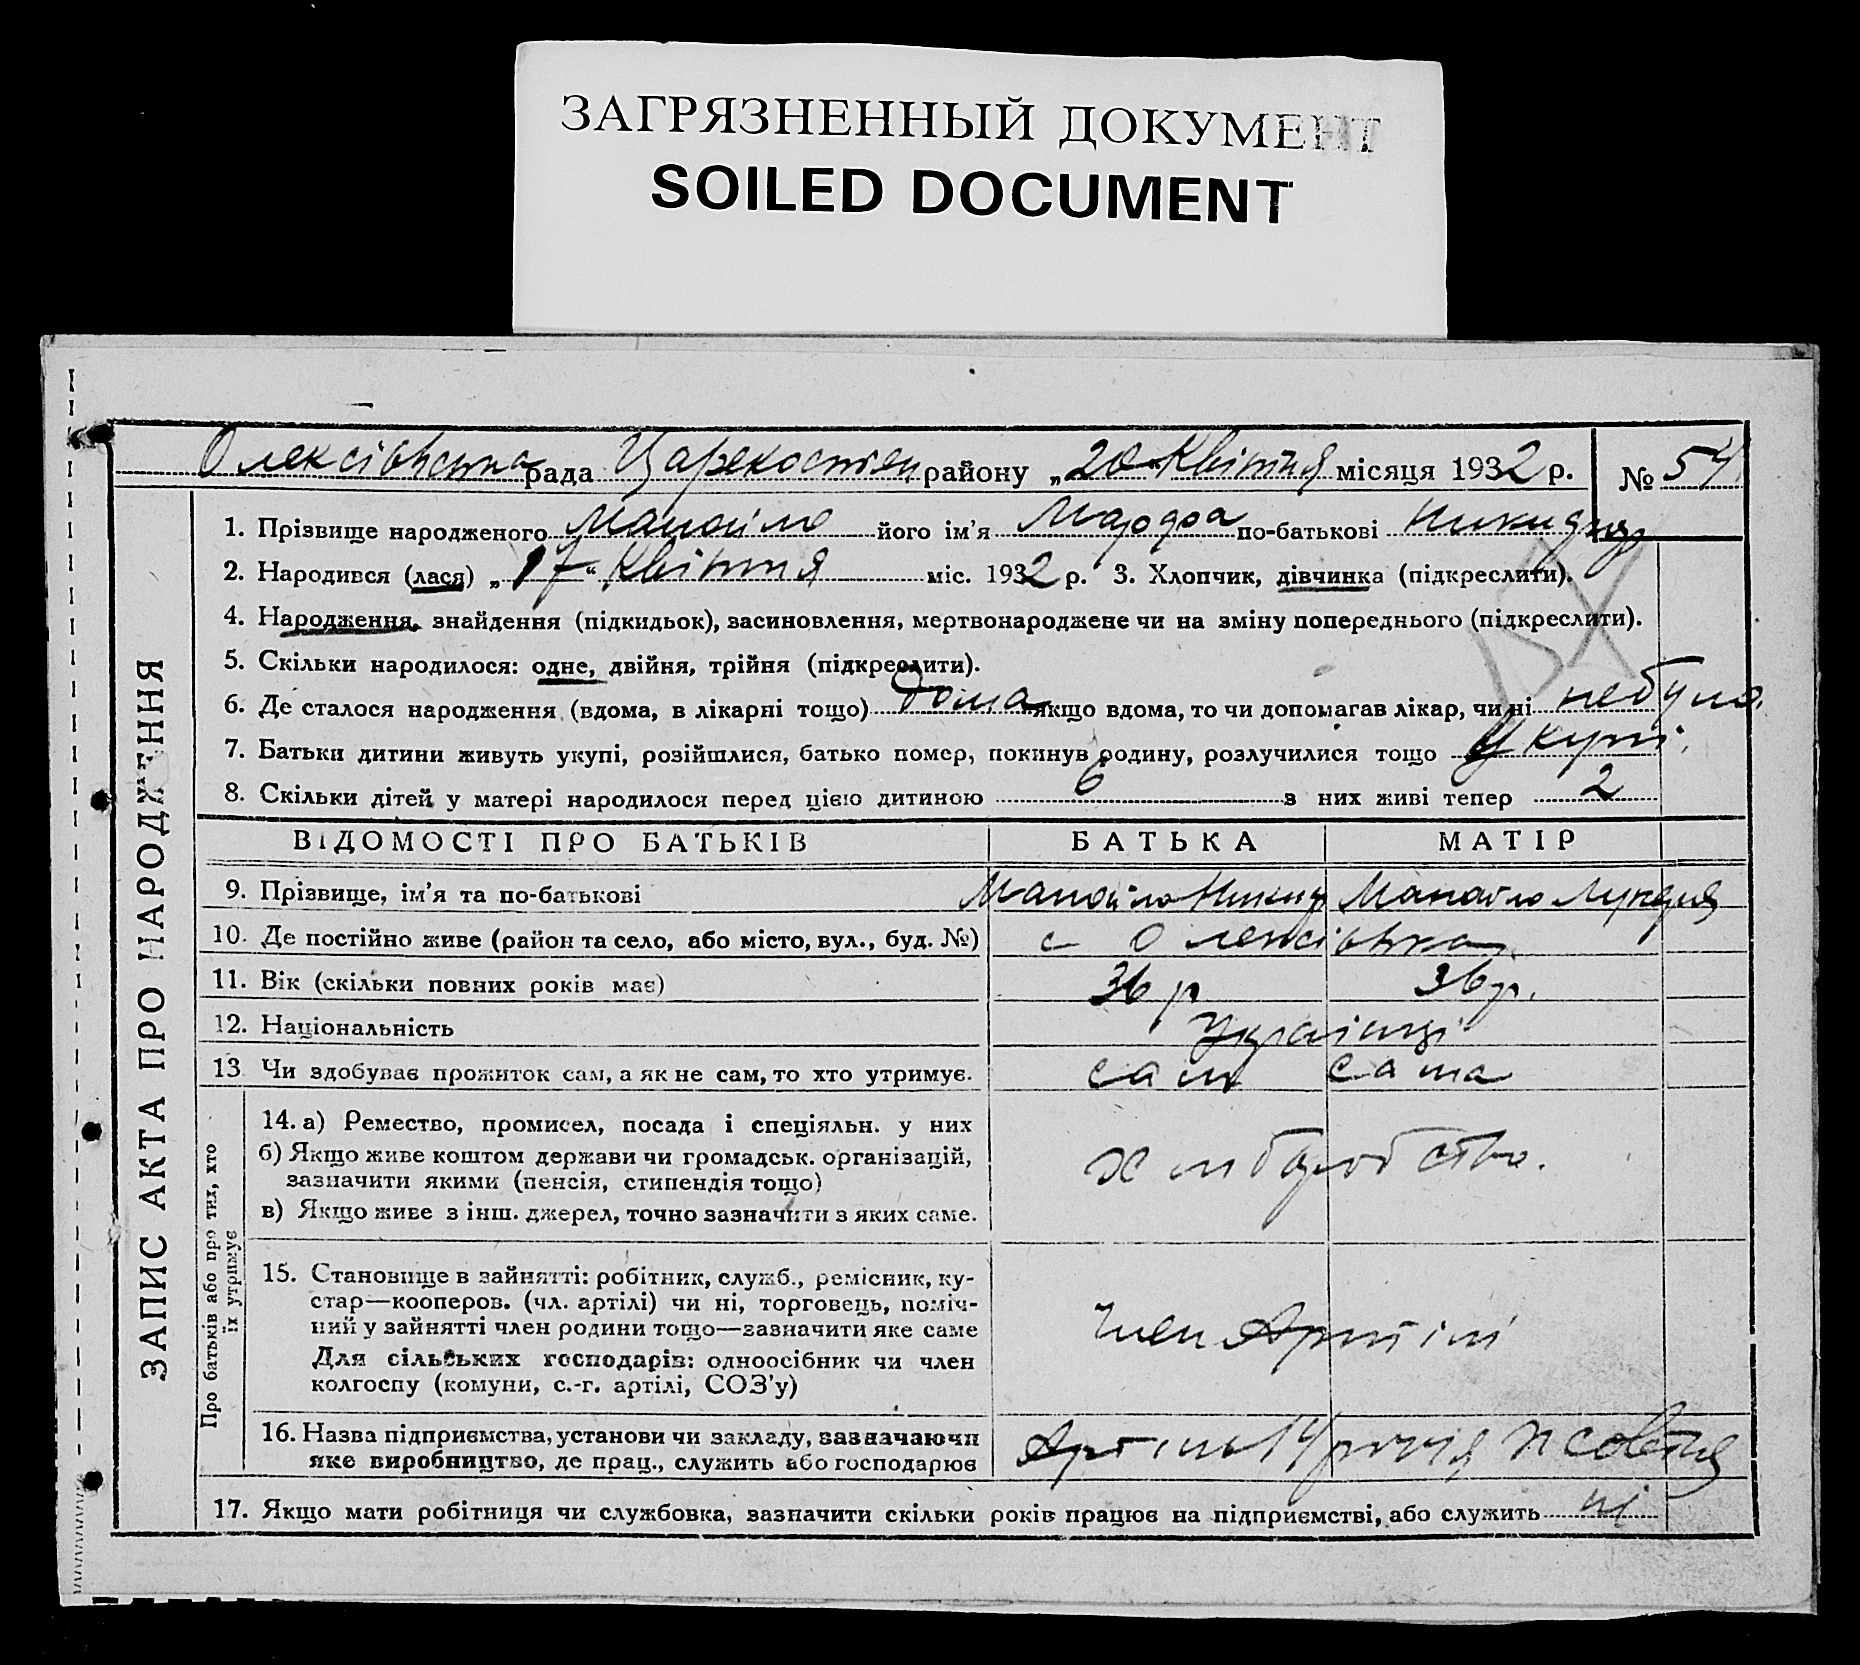 ЗАГРЯЗНЕННЫЙ ДОКУМЕНТ
SOILED DOCUMENT
Олексіївська рада Царекостян району „20“ Квітня місяця 1932 р. № 54
ЗАПИС АКТА ПРО НАРОДЖЕННЯ
1. Прізвище народженого Манойло його ім'я Марфа по-батькові
2. Народився (лася) „17“ Квітня міс. 1932 р. 3. Хлопчик, дівчинка (підкреслити).
4. Народження, знайдення (підкидьок), засиновлення, мертвонароджене чи на зміну попереднього (підкреслити).
5. Скільки народилося: одне, двійня, трійня (підкреслити).
6. Де сталося народження (вдома, в лікарні тощо) дома якщо вдома, то чи допомагав лікар, чи ні небуло.
7. Батьки дитини живуть укупі, розійшлися, батько помер, покинув родину, розлучилися тощо Укупі.
8. Скільки дітей у матері народилося перед цією дитиною 6 з них живі тепер 2
ВІДОМОСТІ ПРО БАТЬКІВ БАТЬКА МАТІР
9. Прізвище, ім'я та по-батькові Манойло Никид Манойло
10. Де постійно живе (район та село, або місто, вул., буд. №) с Олексіівка
11. Вік (скільки повних років має) 36 р 36 р.
12. Національність Українці
13. Чи здобуває прожиток сам, а як не сам, то хто утримує. сам сама
Про батьків або про тих, хто
їх утримує
14. а) Ремество, промисел, посада і спеціяльн. у них
б) Якщо живе коштом держави чи громадськ. організацій,
зазначити якими (пенсія, стипендія тощо)
в) Якщо живе з інш. джерел, точно зазначити з яких саме.
15. Становище в зайнятті: робітник, служб., ремісник, ку-
стар—кооперов. (чл. артілі) чи ні, торговець, поміч-
ний у зайнятті член родини тощо—зазначити яке саме
Для сільських господарів: одноосібник чи член
колгоспу (комуни, с.-г. артілі, СОЗ'у)
член Артілі
16. Назва підприємства, установи чи закладу, зазначаючи
яке виробництво, де прац., служить або господарює
Артіль 14 річчя Жовтня
17. Якщо мати робітниця чи службовка, зазначити скільки років працює на підприємстві, або служить ні